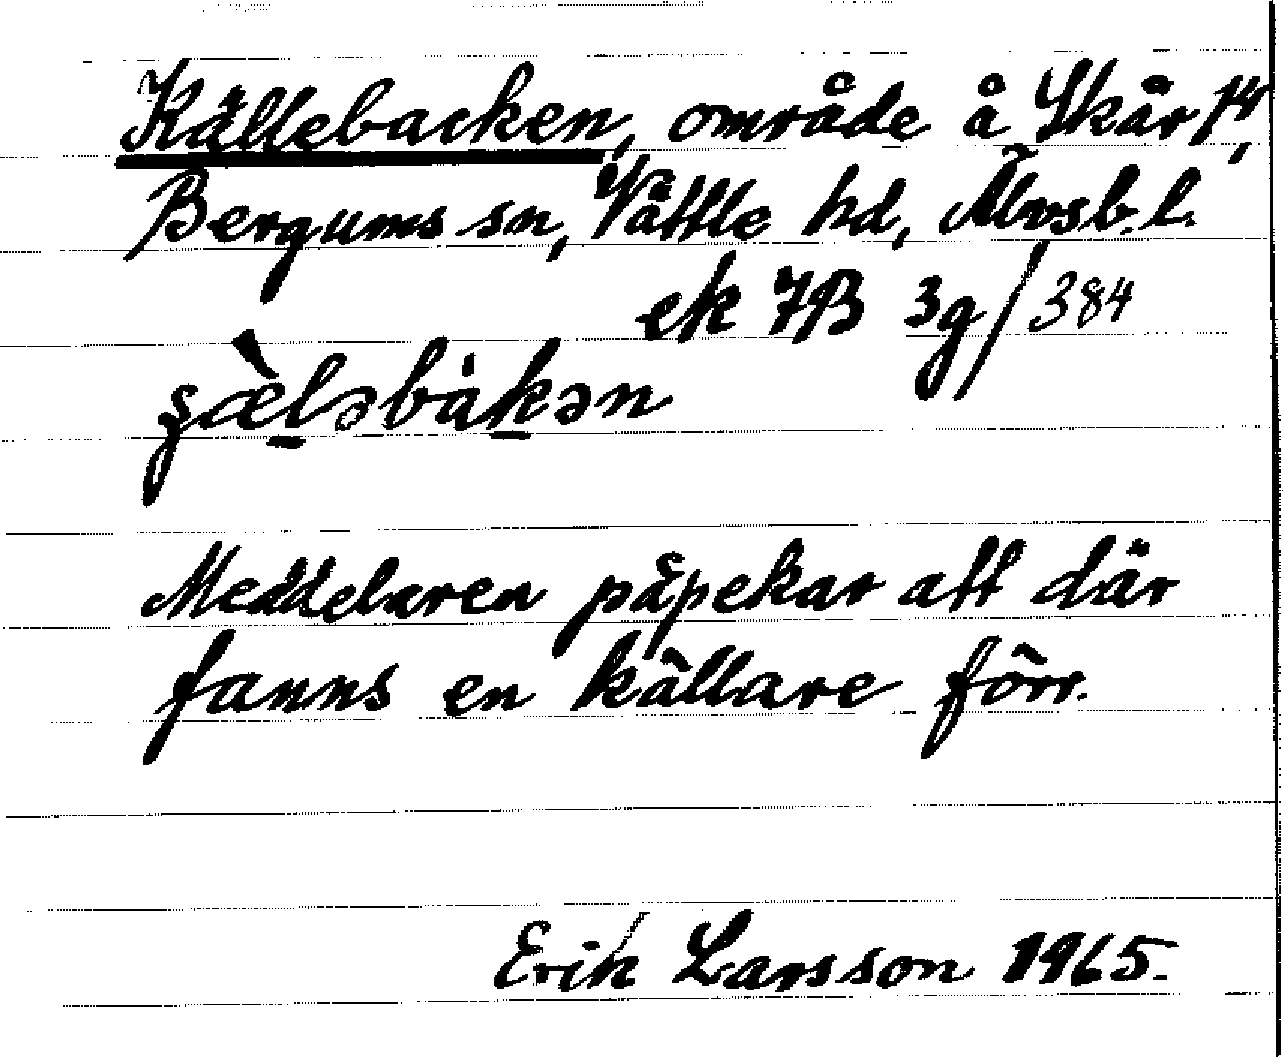 Källebacken, område å Skår 14,
Bergums sn, Vättle hd, Älvsb.l.
ek 7B 3g/384
ʂæ̀lǝbàkǝn
Meddelaren påpekar att där
fanns en källare förr.
Erik Larsson 1965.